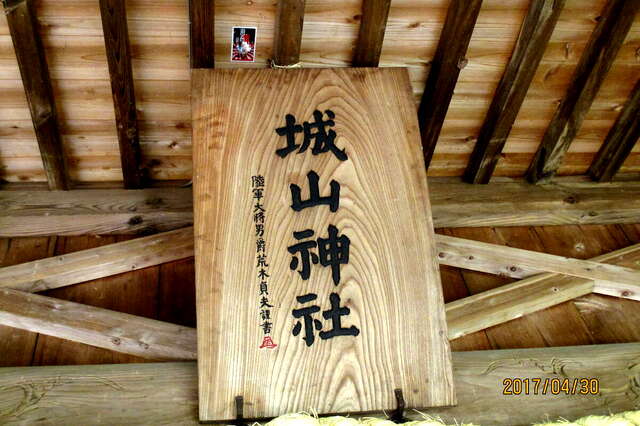 城山神社
陸軍大将男爵荒木貞夫謹書
2017/04/30